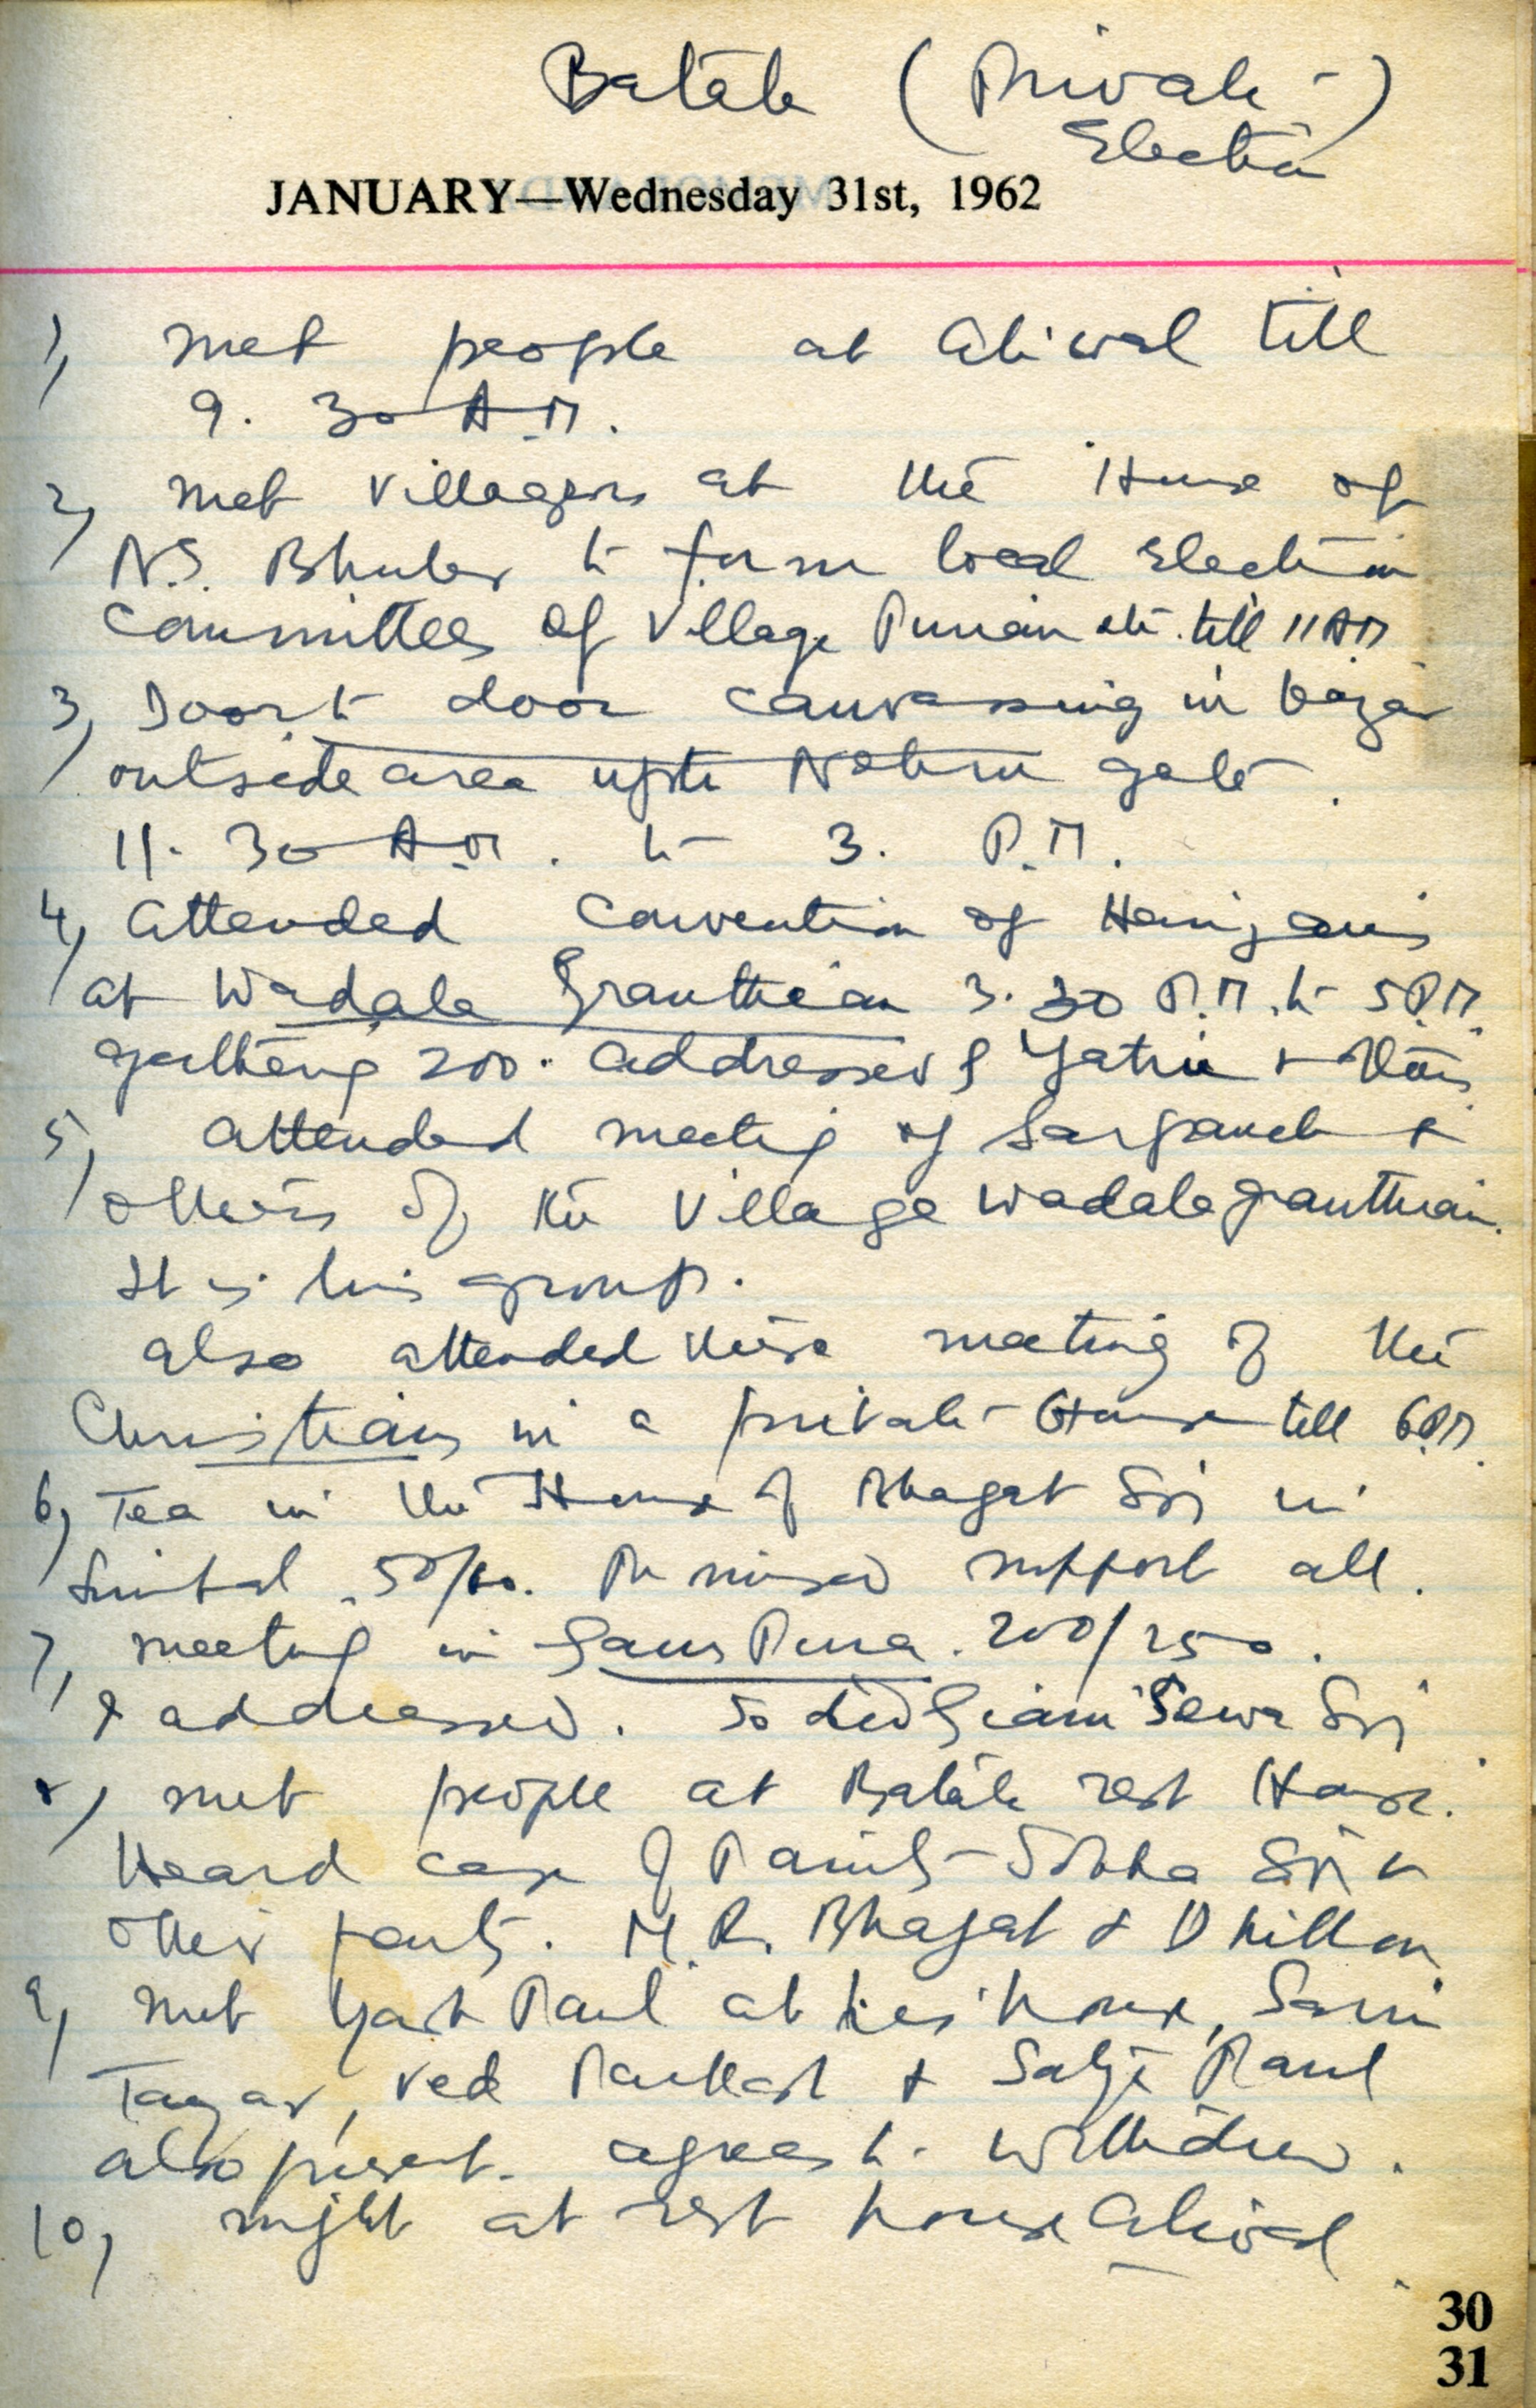 Batala (Private-)
Election
JANUARY—Wednesday 31st, 1962
1, met people at Aliwal till
9.30 A.M.
2, met villagers at the House of
N.S. Bhuler to form local Election
Committees of Village Punian etc. till 11 AM
3, Door to door canvassing in bazar
outside area upto Nehru gate.
11.30 A.M. to 3. P.M.
4, Attended Convention of Harijans
at Wadala Granthian 3.30 P.M. to 5 P.M.
gathering 200. addressed &
5, attended meeting of Sarpanch &
others of the Village Wadala granthian.
It is his group.
also attended there meeting of the
Christians in a private House till 6 P.M.
6, Tea in the House of Bhagat Sing in
50/60. Promised support all.
7, meeting in 200/250.
I addressed. So did Giani Sewa Sing
8, met people at Batala rest House.
Heard case of Sobha Sing &
other party. M.R. Bhagat & Dhillon
9, met Yash Paul at his house,
Tangar, Ved Parkash & Satya Paul
also present. agrees to withdraw.
10, night at rest house Aliwal
30
31